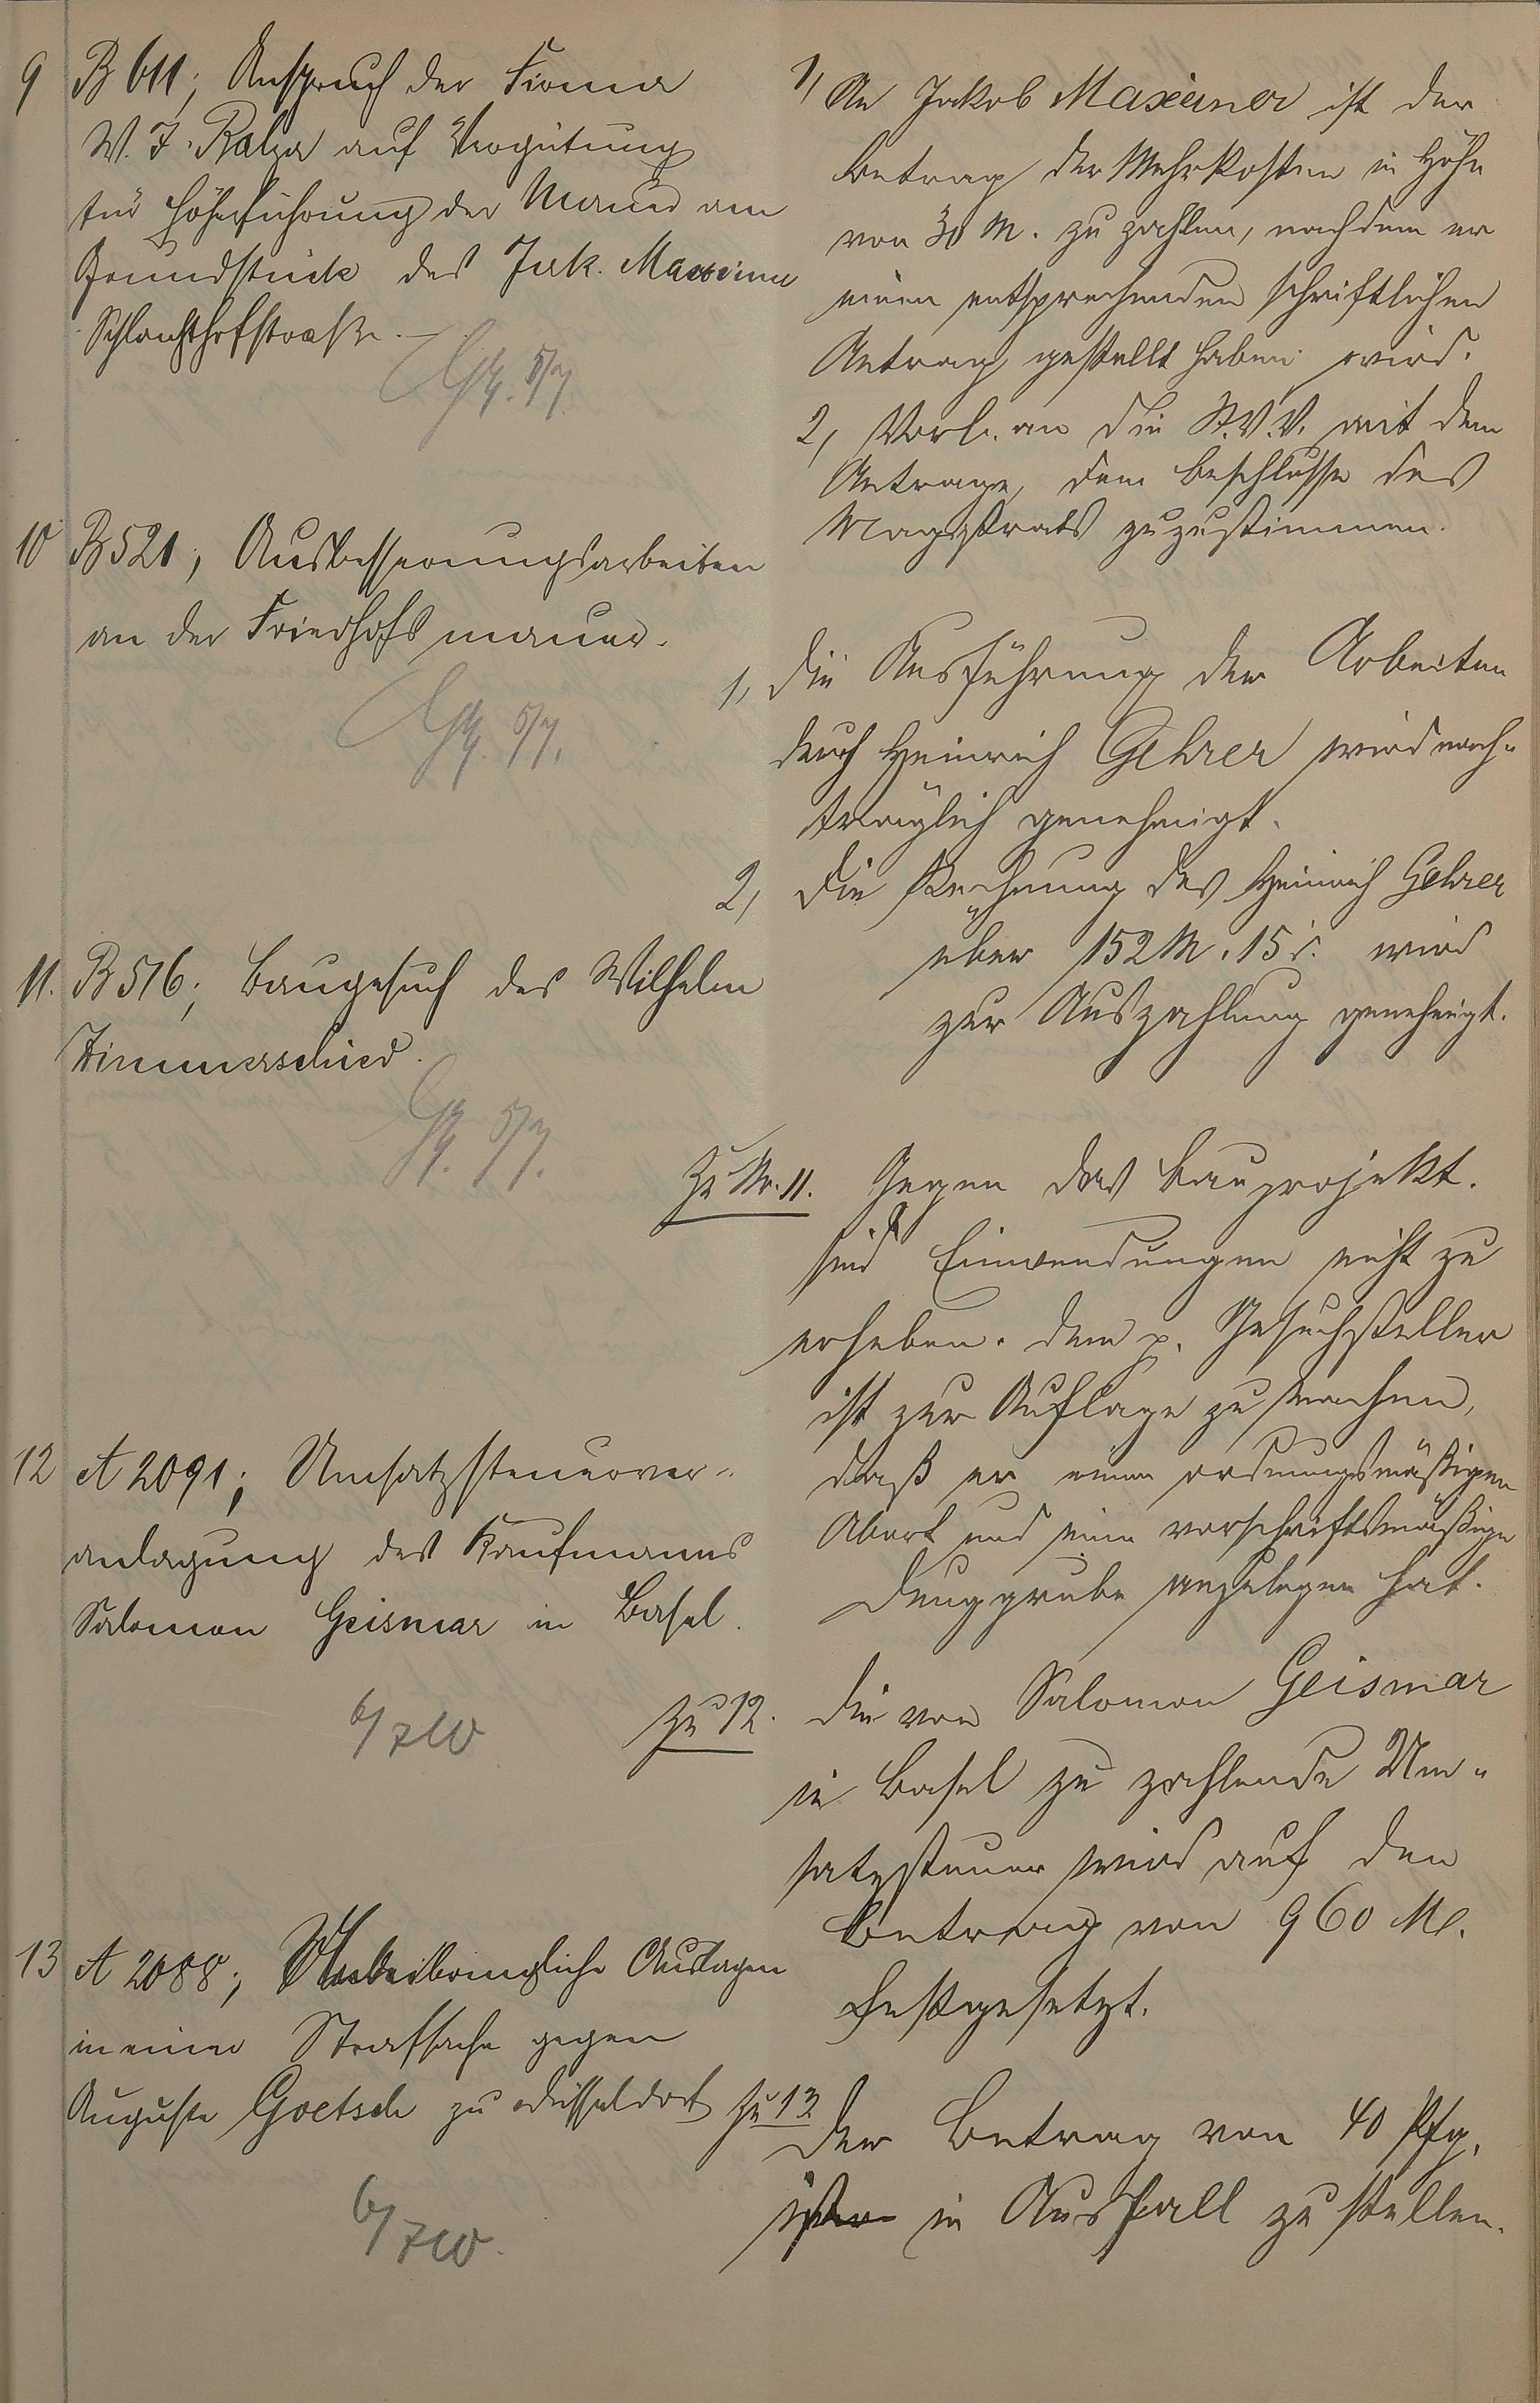 9 B 611; Anspruch der Firma
W. J. auf Vergütung
für Höherführung der Mauer am
Grundstück des Jak. Maxeiner
Schlachthofstraße. –
5/7.
1, An Jakob Maxeiner ist der
Betrag der Mehrkosten in Höhe
von 30 M. zu zahlen, nachdem er
einen entsprechenden schriftlichen
Antrag gestellt haben wird.
2, Vorl. an die St.V.V. mit dem
Antrage, dem Beschlusse des
Magistrats zuzustimmen.
10 B 521; Ausbesserungsarbeiten
an der Friedhofsmauer.
5/7.
1, Die Ausführung der Arbeiten
durch Heinrich Gehrer wird nach-
träglich genehmigt.
2, Die Rechnung des Heinrich Gehrer
über 152 M. 15 wird
zur Auszahlung genehmigt.
11. B 516; Baugesuch des Wilhelm
Zimmerschied.
5/7.
Zu Nr. 11. Gegen das Bauprojekt.
sind Einwendungen nicht zu
erheben. Dem p. Gesuchsteller
ist zur Auflage zu machen,
daß er einen ordnungsmäßigen
Abort und eine vorschriftsmäßige
Dunggrube anzulegen hat.
12 A 2091; Umsatzsteuerver-
anlagung des Kaufmanns
Salomon Geismar in Basel.
6/7 W
Zu 12. Die von Salomon Geismar
in Basel zu zahlende Um-
satzsteuer wird auf den
Betrag von 960 M.
festgesetzt.
13 A 2088; Unbeibringliche Auslagen
in einer Strafsache gegen
Auguste Goetsch zu Düsseldorf
6/7 W.
Zu 13 Der Betrag von 40 Pfg.
ist in Ausfall zu stellen.